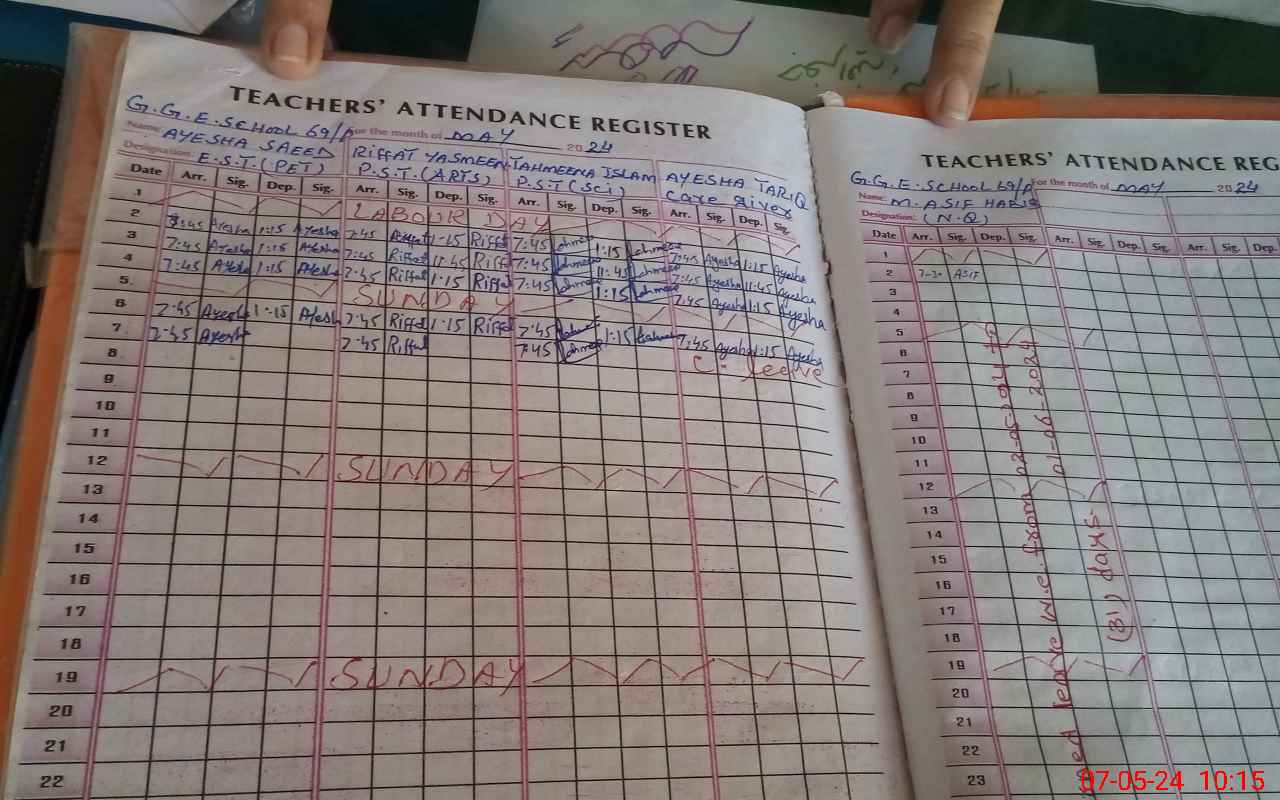 TEACHERS' ATTENDANCE REGISTER
G.G.E.SCHOOL 69/A For the month of MAY 2024
Name: AYESHA SAEED RIFFAT YASMEEN TAHMEENA ISLAM AYESHA TARIQ
Designation: E.S.T.(PET) P.S.T.(ARTS) P.S.T(Sci) Care giver
Date Arr. Sig. Dep. Sig. Arr. Sig. Dep. Sig. Arr. Sig. Dep. Sig. Arr. Sig. Dep. Sig.
1 LABOUR DAY
2 7:45 Ayesha 1:15 Ayesha 7:45 Riffat 1:15 Riffat 7:45 Tahmeena 1:15 Tahmeena 7:45 Ayesha 1:15 Ayesha
3 7:45 Ayesha 1:15 Ayesha 7:45 Riffat 11:45 Riffat 7:45 Tahmeena 11:45 Tahmeena 7:45 Ayesha 11:45 Ayesha
4 7:45 Ayesha 1:15 Ayesha 7:45 Riffat 1:15 Riffat 7:45 Tahmeena 1:15 Tahmeena 7:45 Ayesha 1:15 Ayesha
5 SUNDAY
6 7:45 Ayesha 1:15 Ayesha 7:45 Riffat 1:15 Riffat 7:45 Tahmeena 1:15 Tahmeena 7:45 Ayesha 1:15 Ayesha
7 7:45 Ayesha 7:45 Riffat 7:45 Tahmeena C. leave
8
9
10
11
12 SUNDAY
13
14
15
16
17
18
19 SUNDAY
20
21
22
TEACHERS' ATTENDANCE REG
G.G.E.SCHOOL 69/A For the month of MAY 2024
Name: M.ASIF HABIB
Designation: (N.Q)
Date Arr. Sig. Dep. Sig. Arr. Sig. Dep. Sig. Arr. Sig. Dep.
1
2 7-30 ASIF
3
4
5
6
7
8
9
10
11
12
13
14
15
16
17
18
19
20
21
22
23
leave w.e.from 02-05-2024 to
01-06-2024
(31) days
07-05-24 10:15